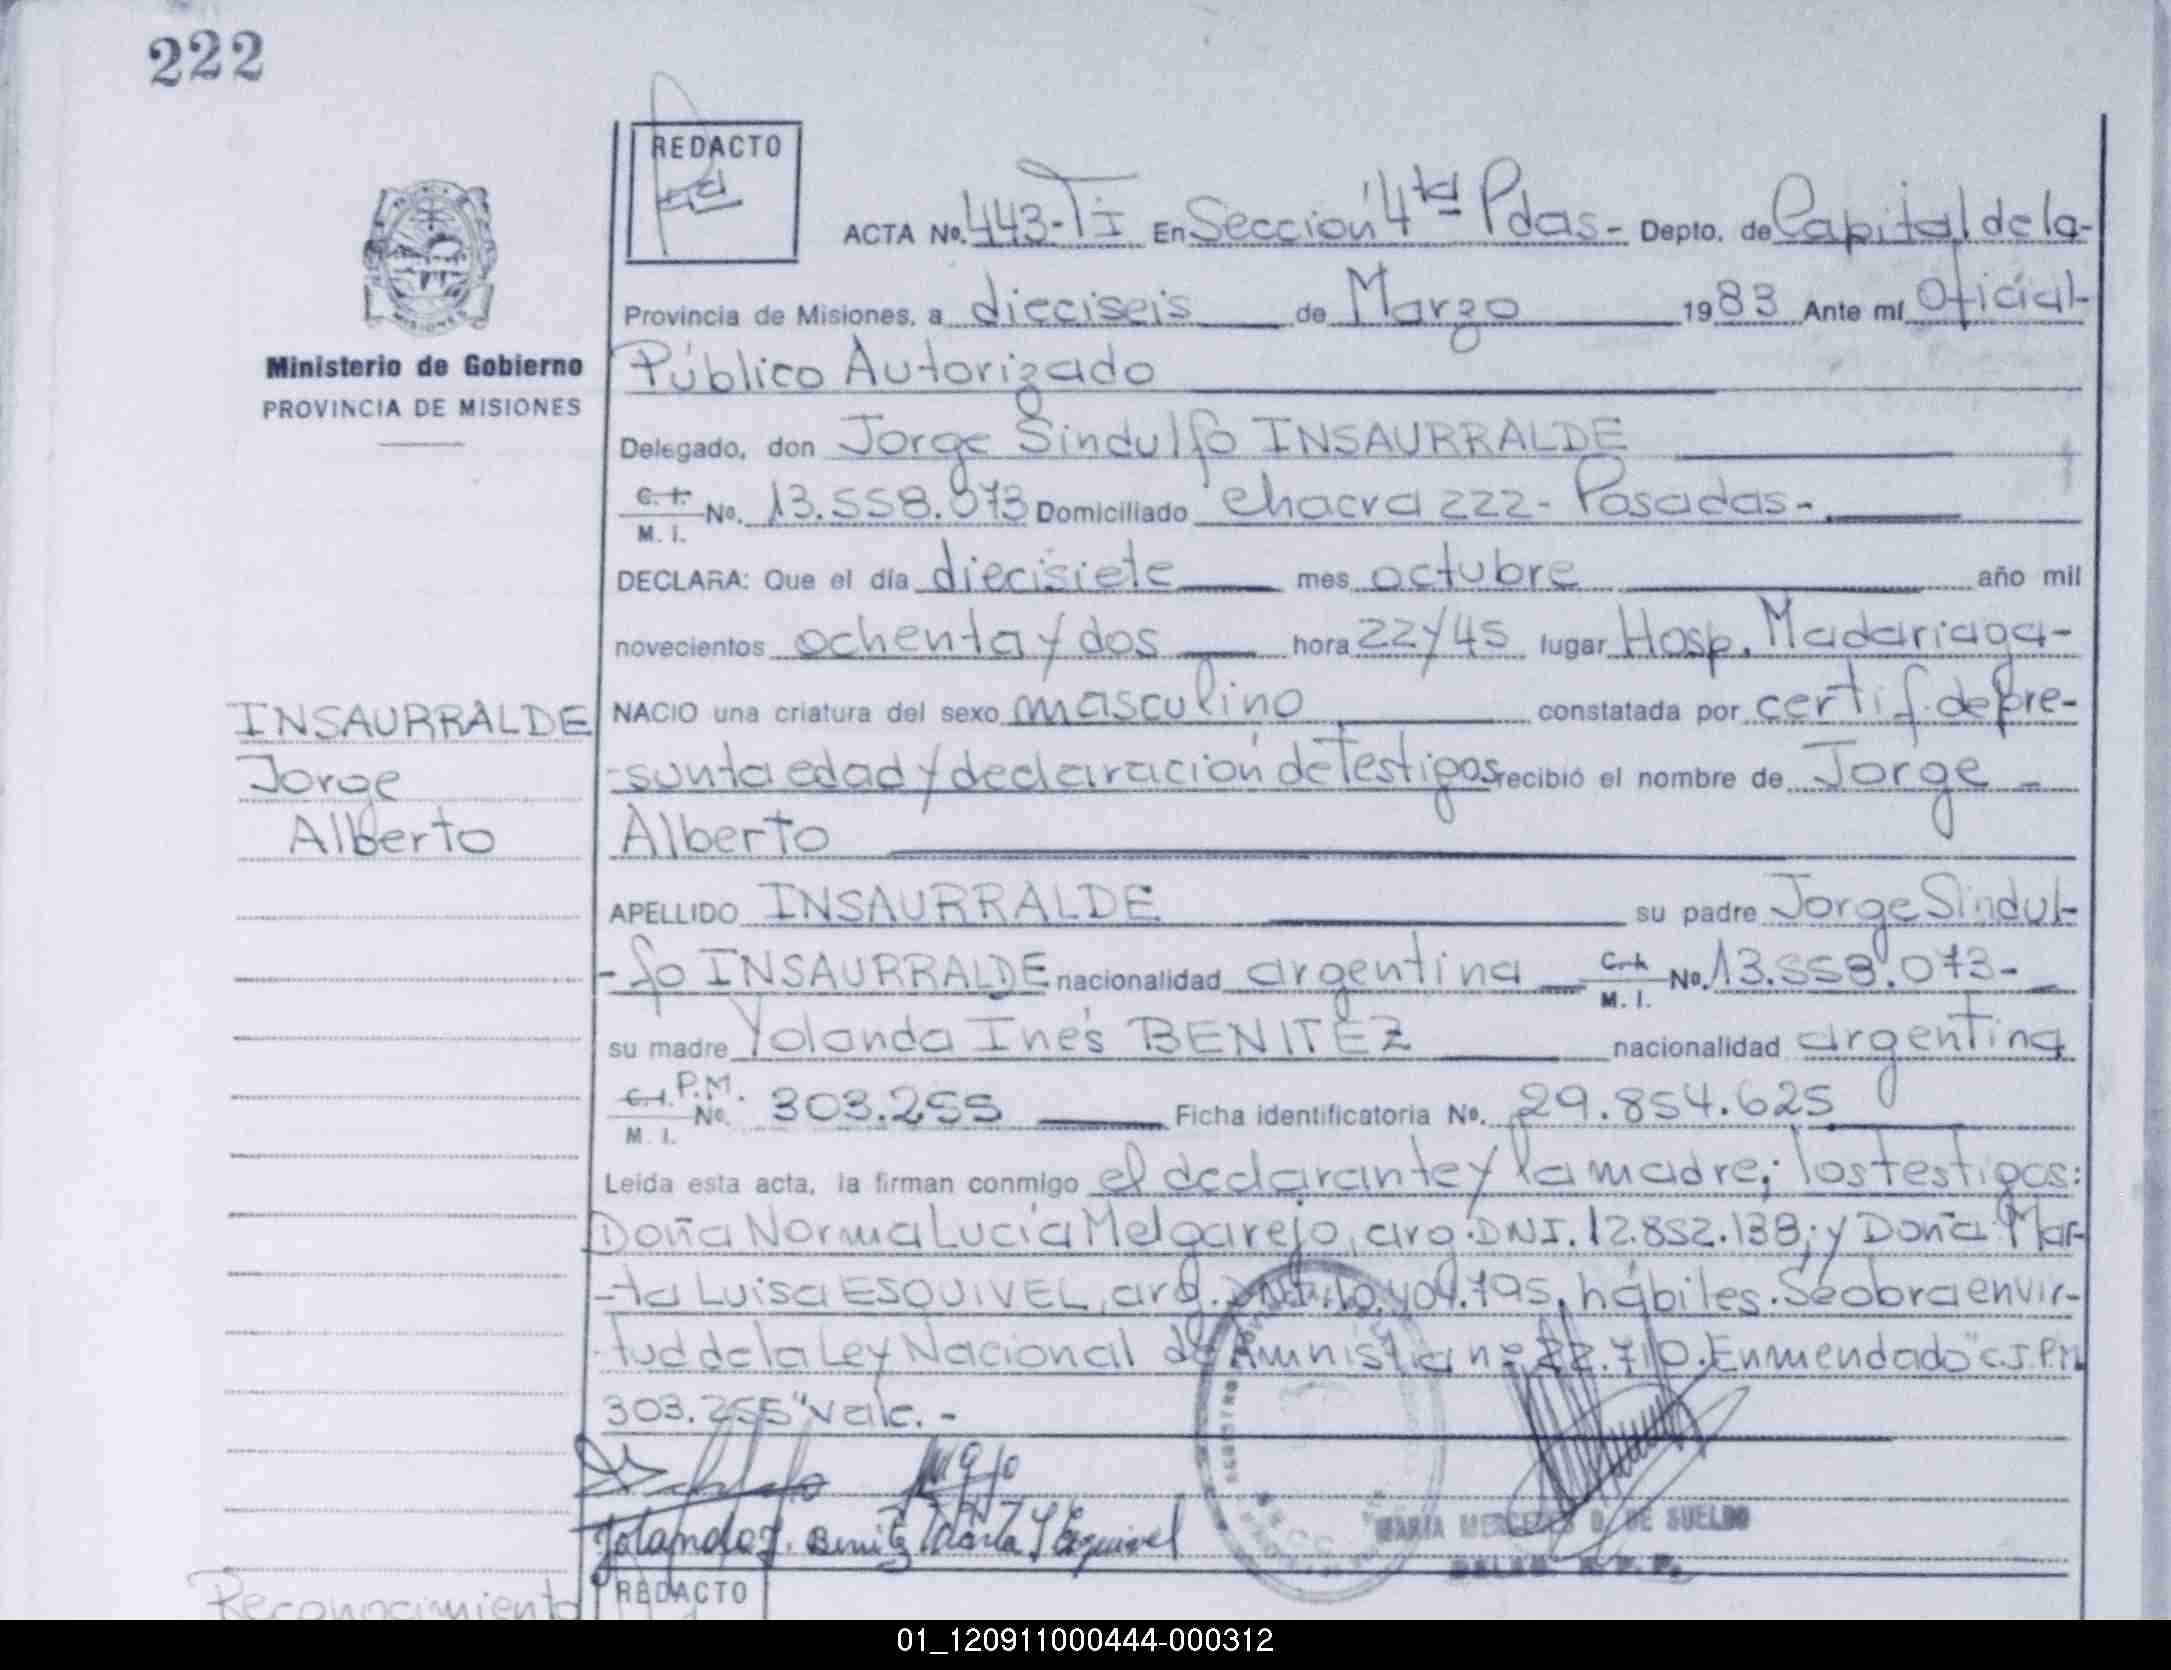 222
REDACTO
ACTA No. 443-TI En Sección 4ta Pdas- Depto. de Capital de la-
Provincia de Misiones, a dieciseis de Marzo 1983 Ante mí Oficial-
Ministerio de Gobierno
PROVINCIA DE MISIONES
Público Autorizado
Delegado, don Jorge Sindulfo INSAURRALDE
C. I. M. I. No. 13.558.073 Domiciliado Chacra 222- Posadas-
DECLARA: Que el día diecisiete mes octubre año mil
novecientos ochenta y dos hora 22 y 45 lugar Hosp. Madariaga-
INSAURRALDE
Jorge
Alberto
NACIO una criatura del sexo masculino constatada por certif. de pre-
-sunta edad y declaración de Testigos recibió el nombre de Jorge
Alberto
APELLIDO INSAURRALDE su padre Jorge Sindul-
-fo INSAURRALDE nacionalidad argentina C. I. M. I. No. 13.558.073-
su madre Yolanda Inés BENITEZ nacionalidad argentina
C. I. P.M. M. I. No. 303.255 Ficha identificatoria No. 29.854.625
Leída esta acta, la firman conmigo el declarante y la madre; los testigos:
Doña Norma Lucía Melgarejo, arg. DNI. 12.852.138; y Doña Mar-
-ta Luisa ESQUIVEL, arg. DNI. 10.404.795, hábiles. Se obra en vir-
-tud de la Ley Nacional de Amnistia nº 22.710. Enmendado "C.I.P.M.
303.255" Vale. -
Yolanda I. Benitez Marta L Esquivel
MARIA MERCEDES D. DE SUELDO
DELEG. R. P. P.
Reconocimiento
REDACTO
01_120911000444-000312